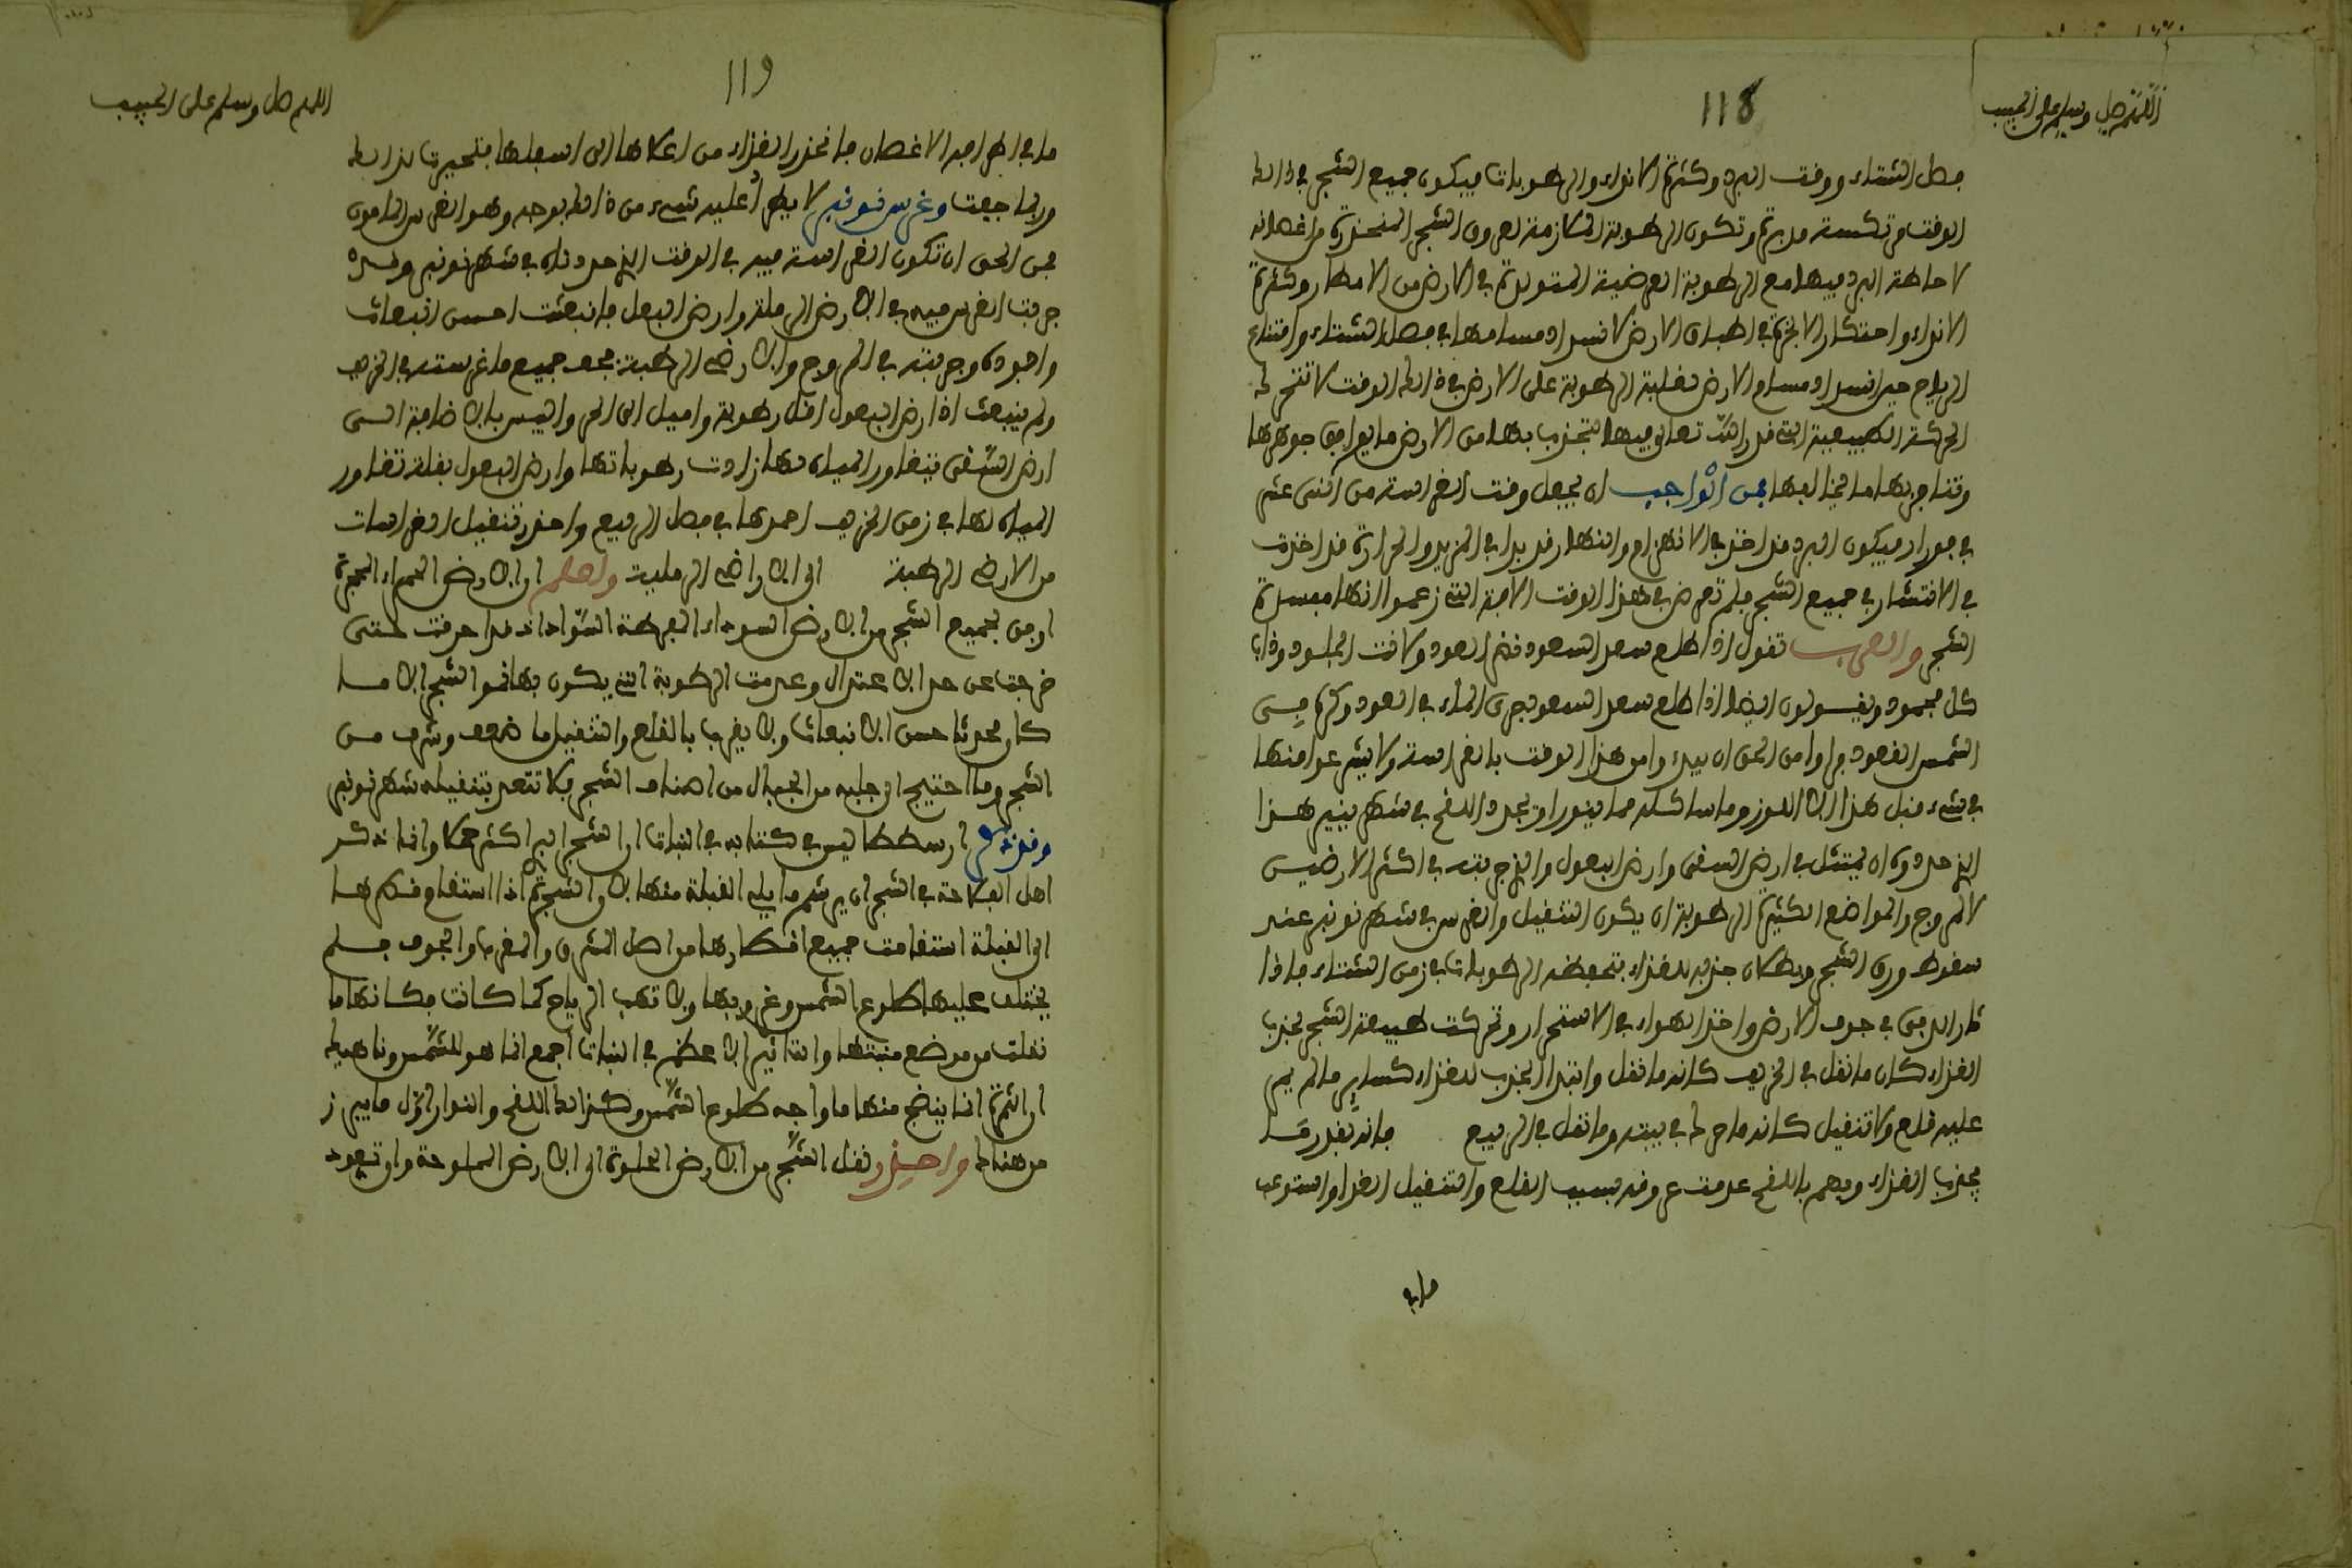 اللهم صل وسلم على الحبيب
118
فصل الشتاء ووقت البرد وكثرة الانواء والرطوبات فيكون جميع الشجر في ذالك
الوقت وتكون الرطوبة اللازمة لعروق الشجر المنحدرة من اغصانه
لاحاطة البرد فيها مع الرطوبة العرضية المتولدة في الارض من الامطار وكثرة
الانواء واحتكار الابخرة في اطباق الارض لانسداد مسامها في فصل الشتاء وامتناع
الرياح حين انسداد مسام الارض لغلبة الرطوبة على الارض في ذالك الوقت لا تتحرك
الحركة الطبيعية التي قدر الله تعالى فيها لتجذب بها من الارض ما يوافق جوهرها
وتدفع بها ما يخالفها فمن الواجب ان يجعل وقت الغراسة من اثنى عشر
في فورار فيكون البرد قد اخذ في الانهزام والنهار قد بدا في المزيد والحرارة قد اخذت
في الانتشار في جميع الشجر فلم تعرض في هذا الوقت الآفة التي زعموا انها مفسدة
الشجر والعرب تقول اذا طلع سعد السعود نضر العود ولانت الجلود وذاب
كل مجمود ويقولون ايضا اذا طلع سعد السعود جرى الماء في العود وكره في
الشمس القعود فراوا من الحق ان يبدءوا من هذا الوقت بالغراسة ولا يشرعوا منها
في شيء قبل هذا الا اللوز وما شاكله مما ينور او يجرد اللقح في شهر ينير هذا
الذي حدوه ان يمتثل في ارض السقي وارض البعول والذي جربته في اكثر الارضين
كالمروج والمواضع الكثيرة الرطوبة ان يكون التنقيل والغرس في شهر نونبر عند
سقوط ورق الشجر وبطلان جذبه للغذاء بتحفظه الرطوبات في زمن الشتاء فاذا
ثار الدفئ في جوف الارض واخذ الهواء في الاستحرار وتحركت طبيعة الشجر لجذب
الغذاء كان ما نقل في الخريف كانه ما نقل وابتدا لجذب للغذاء كساير ما لم يجر
عليه قلع ولا تنقيل كانه ما حرك في بيته وما نقل في الربيع فانه بقدر ما
يجذب الغذاء ويهم باللقح عدمت عروقه بسبب القلع والتنقيل الغذا واستوعب
ما في
119
اللهم صل وسلم على الحبيب
ما في اطرافه الاغصان فانحدر الغذاء من اعلاها الى اسفلها فتحيرت لذالك
وربما جفت وغرس نونبر لا يطرأ عليه شيء من ذالك بوجه وهو الغرس المامون
فمن الحق ان تكون الغراسة فيه في الوقت الذي حددناه في شهر نونبر وقد
جربت الغرس فيه في الارض الرملة وارض البعل فانبعثت احسن انبعاث
واجوده وجربته في المروج والارض الرطبة فجف جميع ما غرسته في الخريف
ولم ينبعث اذ ارض البعول اقل رطوبة واميل الى الحر واليبس بالاضافة الى
ارض السقي فتعاور المياه لها زادت رطوباتها وارض البعول بقلة تعاور
المياه لها في زمن الخريف احمدها في فصل الربيع واحذر تنقيل الغراسات
من الارض الرطبة الى الاراضي الرملية واعلم ان الارض الحمراء المحجرة
اوفق لجميع الشجر من الارض السوداء المفرطة السواد اذ قد احرقت حتى
خرجت عن حد الاعتدال وعدمت الرطوبة التي يكون بها نمو الشجر الا ما
كان محدثا حسن الانبعاث ولا يغرب بالقلع والتنقيل ما ضعف وشرف من
الشجر وما احتيج الى جلبه من الجبال من اصناف الشجر فلا تتعد بتنقيله شهر نونبر
وقد زعم ارسططاليس في كتابه في النبات ان الشجر البرا كثر حملا وانما ذكر
اهل الفلاحة في الشجر ان يرشم ما يلي القبلة منها لان الشجرة اذا استقام فطرها
الى القبلة استقامت جميع اقطارها من اصل المشرق والمغرب والجوف فلم
يختلف عليها طلوع الشمس وغروبها ولا تهب الرياح كما كانت مكانها ما
نقلت من موضع منبتها والتاثير الاعظم في النبات اجمع انما هو للشمس وناهيك
ان الثمرة انما ينضج منها ما واجه طلوع الشمس وكذالك اللقح والنوار اول ما يبرز
من هناك واحذر نقل الشجر من الارض الحلوة الى الارض المملوحة وان تعود